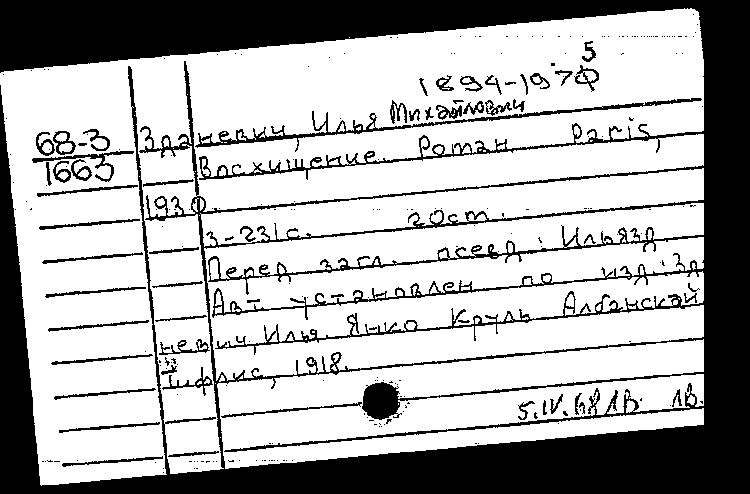 1894-1975
68-3
1663
Зданевич, Илья Михайлович
Восхищение. Роман. Paris,
1930.
3-231с. 20cm.
Перед загл. псевд: Ильязд
Авт установлен по изд.: Зда
невич, Илья. Янко Круль Албанскай
Тифлис, 1918.
5.IV.68 ЛВ. ЛВ.